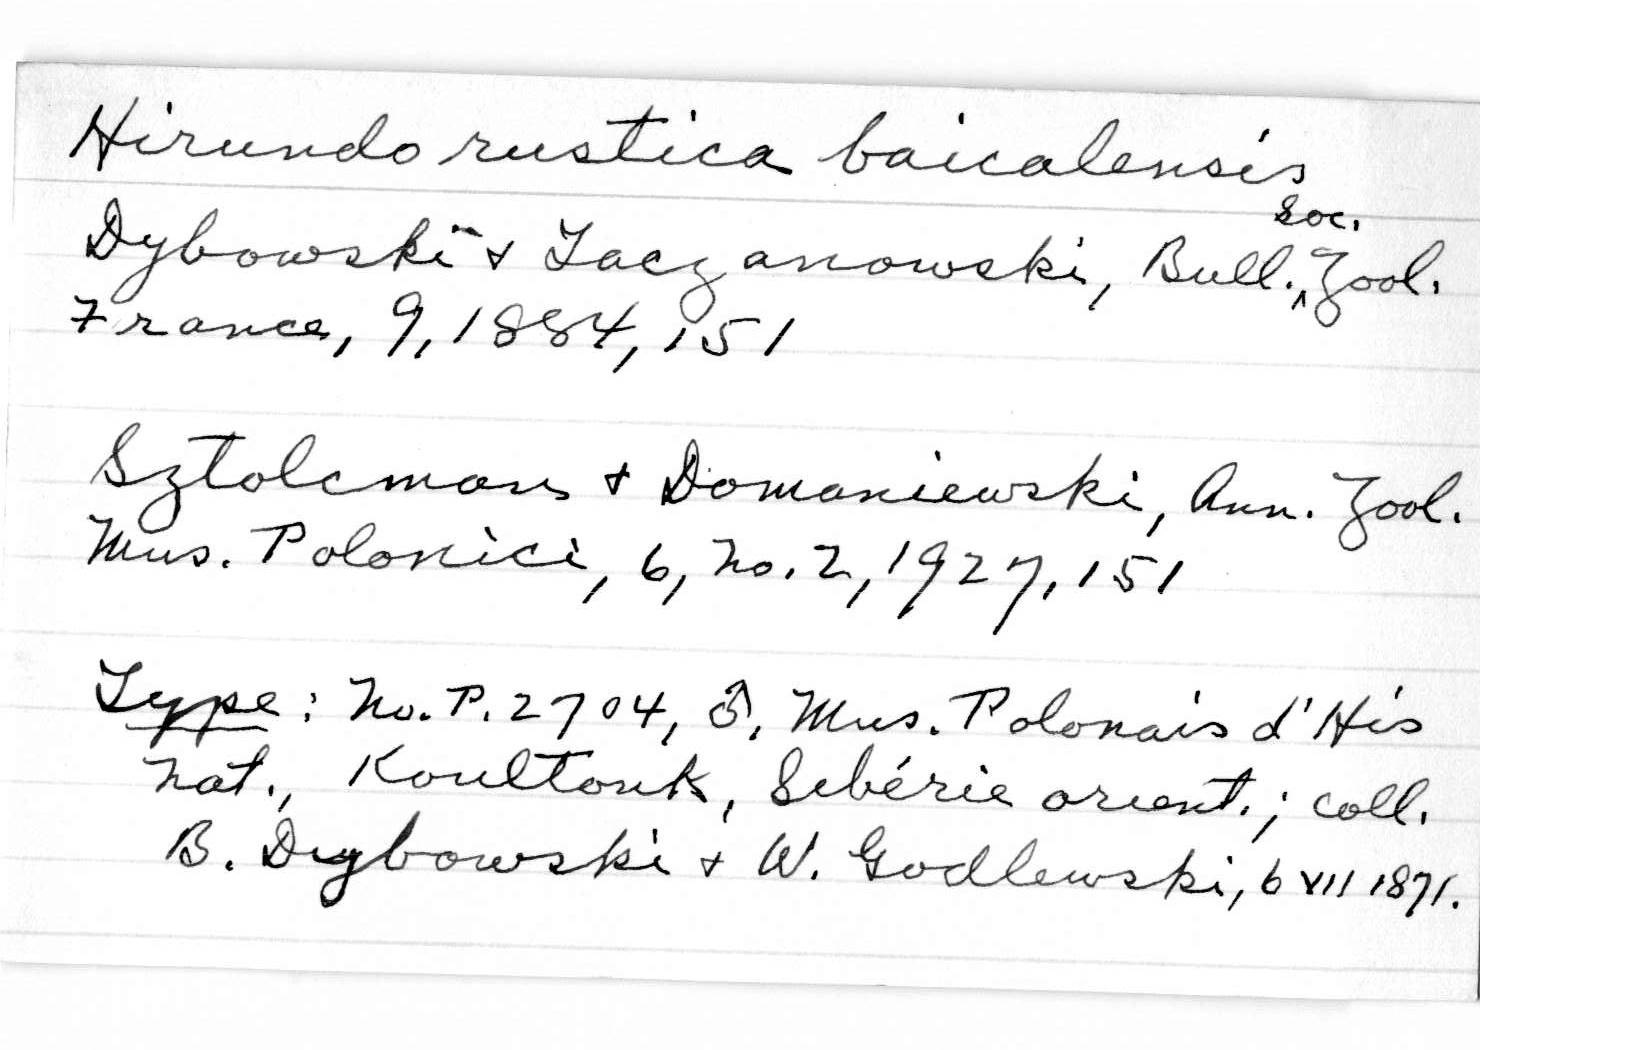 Hirundo rustica baicalensis
Dybowski & Taczanowski, Bull. Soc. Zool.
France, 9, 1884, 151
Sztolcman & Domaniewski, Ann. Zool.
Mus. Polonici, 6, No. 2, 1927, 151
Type: No. P. 2704, ♂, Mus. Polonais d'His
nat., Koultouk, Sibérie orient.; coll.
B. Dybowski & W. Godlewski, 6 VII 1871.